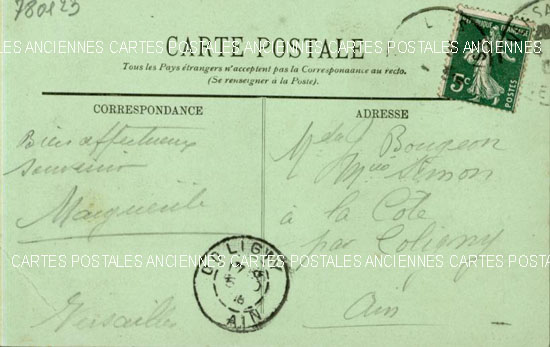 780123
CARTE POSTALE
Tous les Pays étrangers n'acceptent pas la Correspondance au recto.
(Se renseigner à la Poste).
CORRESPONDANCE
ADRESSE
Bien affectueux
souvenir
Marguerite
Versailles
Bougeon
Simon
à la Côte
par Coligny
Ain
REPUBLIQUE FRANÇAISE
5c
POSTES
COLIGNY
AIN
CARTES POSTALES ANCIENNES CARTES POSTALES ANCIENNES CARTES POSTALES ANCIENNES
CARTES POSTALES ANCIENNES CARTES POSTALES ANCIENNES CARTES POSTALES